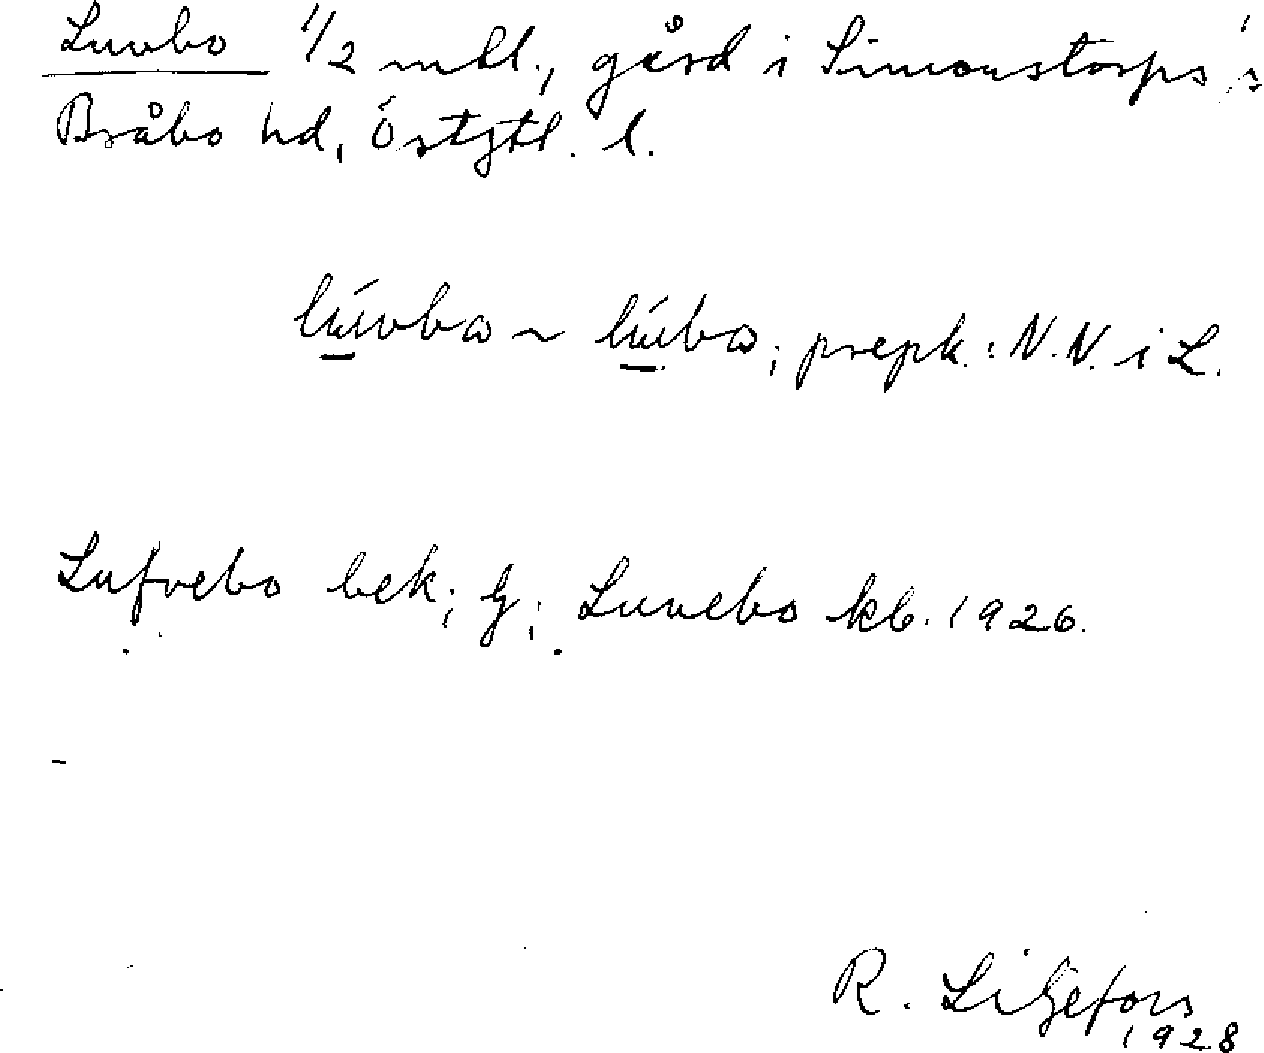 Luvbo 1/2 mtl., gård i Simonstorps s
Bråbo hd, Östgtl. l.
lúvbω ~ lúbω; prepk.: N.N. i L.
Lufvebo bek; G; Luvebo kb. 1926.
R. Liljefors
1928